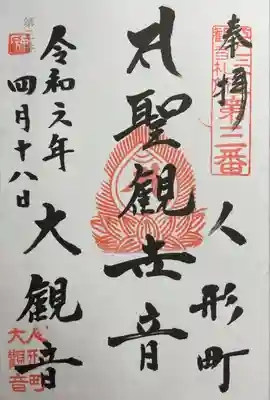 奉拝
第三番
人形町
聖観世音
大観音
令和六年
四月十八日
人形町
大觀音